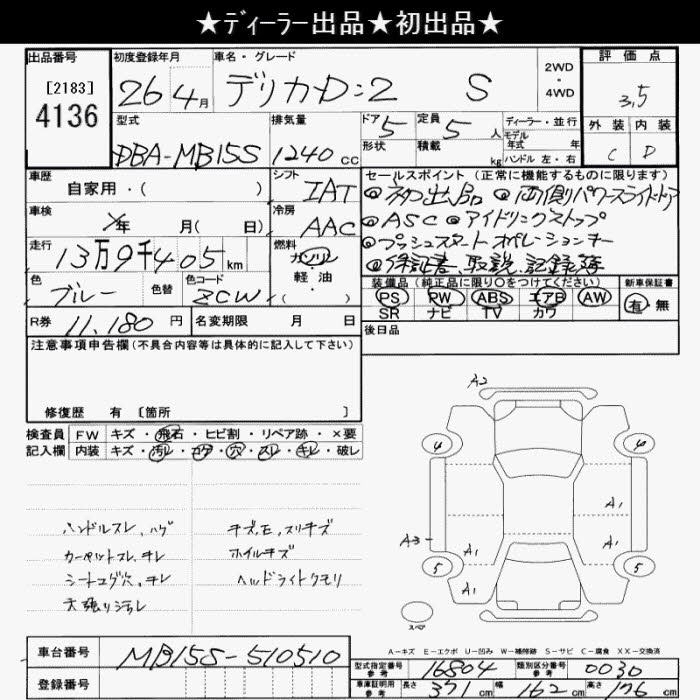 ★ディーラー出品★初出品★
出品番号 初度登録年月 車名・グレード 評価点
[2183] 4136
26年4月 デリカD:2 S 2WD・4WD
3,5
型式 排気量 ドア 5 定員 5人 ディーラー・並行 外装 内装
DBA-MB15S 1240cc 形状 積載 kg モデル年式 年 C D
ハンドル 左・右
車歴 自家用・( ) シフト IAT セールスポイント (正常に機能するものに限ります)
◎初出品 ◎両側パワースライドドア
車検 年 月( 日) 冷房 AAC ◎ASC ◎アイドリングストップ
走行 13万9千405km 燃料 ガソリン・軽・油・( ) ◎プッシュスタート オペレーションキー
◎保証書、取説、記録簿
色 ブルー 色替 色コード ZCW
装備品 (純正品に限り○をつけてください) 新車保証書
PS PW ABS エアB AW 有・無
SR ナビ TV カワ
R券 11,180円 名変期限 月 日
後日品
注意事項申告欄(不具合内容等は具体的に記入して下さい)
修復歴 有 [箇所 ]
検査員記入欄 FW キズ・飛石・ヒビ割・リペア跡・×要
内装 キズ・汚レ・コゲ・穴・スレ・キレ・破レ
ハンドルスレ、ハゲ
カーペットスレ、キレ
シートコゲ穴、キレ
天張り汚レ
ホイルキズ
ヘッドライトクモリ
A2
4 6
A1
A3 A1 A1
5 5
A1
スペア
A-キズ E-エクボ U-凹み W-補修跡 S-サビ C-腐食 XX-交換済
車台番号 MB15S-510510
登録番号
型式指定番号 参考 16804 類別区分番号 参考 0030
車庫証明用 参考 長さ 371cm 幅 162cm 高さ 176cm